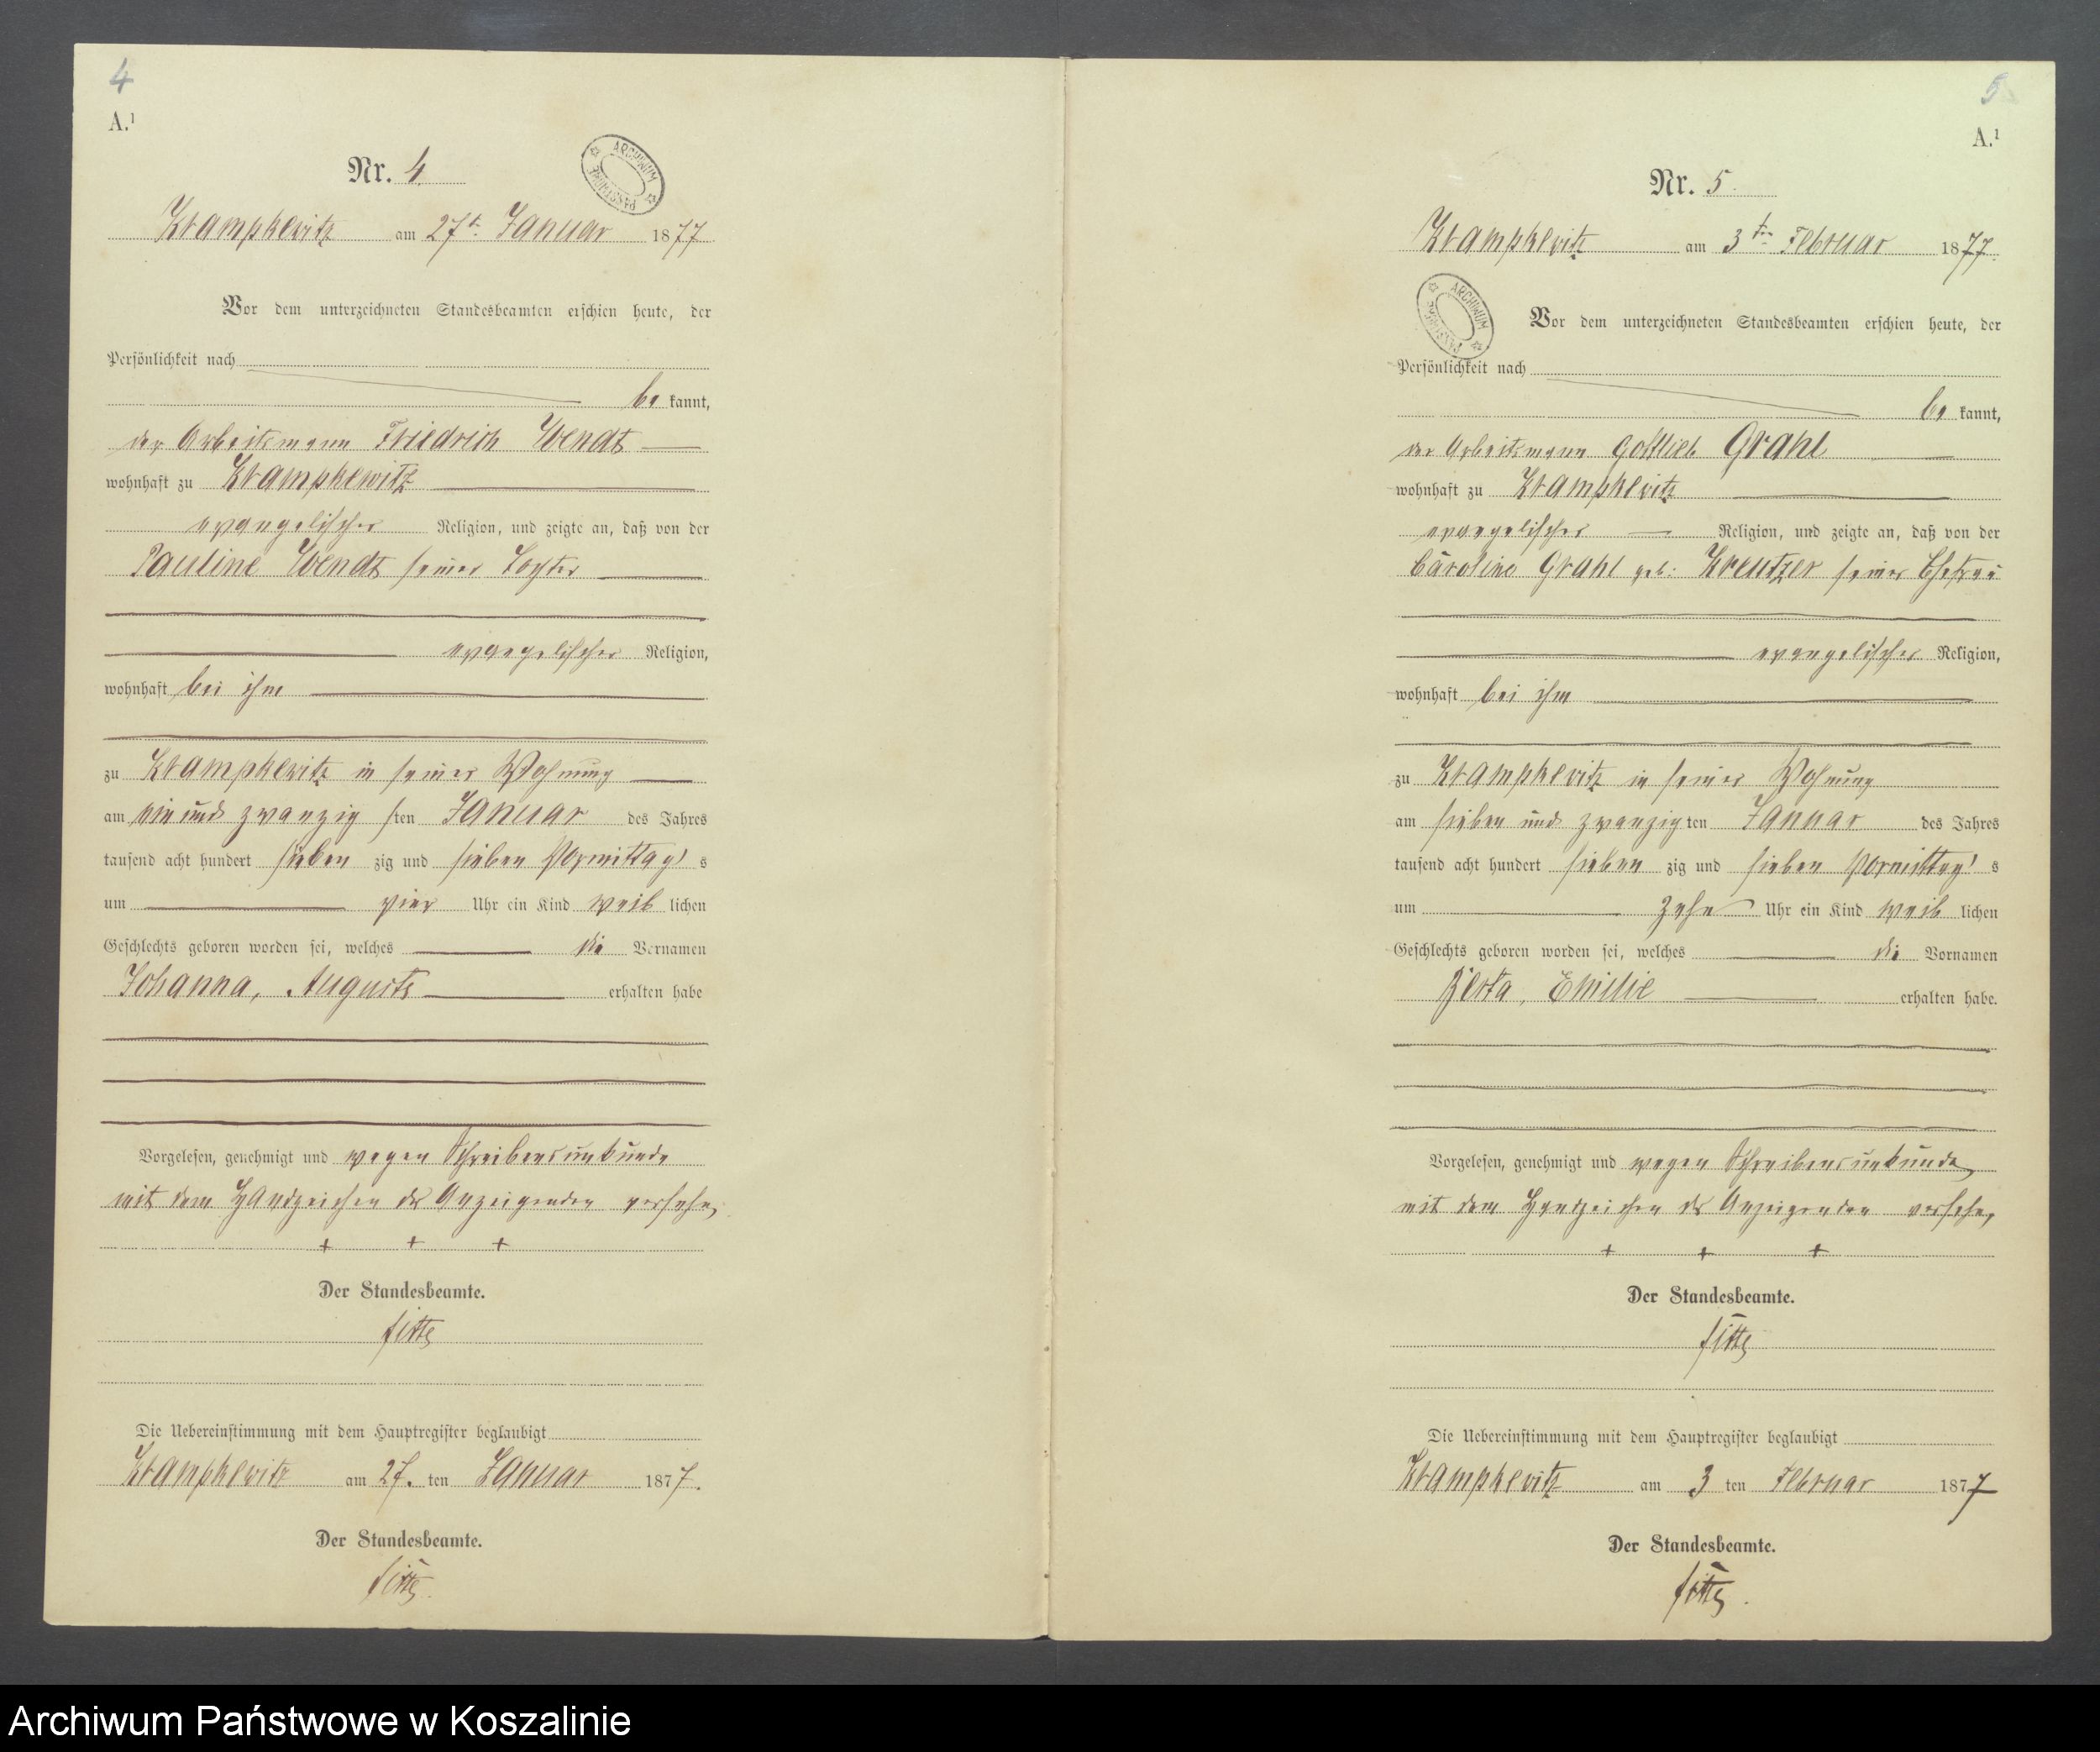 4
A.¹
Nr. 4.
Krampkewitz am 27t. Januar 1877
Vor dem unterzeichneten Standesbeamten erschien heute, der
Persönlichkeit nach
be kannt,
der Arbeitsmann Friedrich Wendt
wohnhaft zu Krampkewitz
evangelischer Religion, und zeigte an, daß von der
Pauline Wendt seiner Tochter
evangelischer Religion,
wohnhaft bei ihm
zu Krampkewitz in seiner Wohnung
am ein und zwanzig sten Januar des Jahres
tausend acht hundert sieben zig und sieben Vormittag s
um vier Uhr ein Kind weib lichen
Geschlechts geboren worden sei, welches die Vornamen
Johanna, Auguste erhalten habe
Vorgelesen, genehmigt und wegen Schreibensunkunde
mit dem Handzeichen des Anzeigenden versehen
+ + +
Der Standesbeamte.
Die Uebereinstimmung mit dem Hauptregister beglaubigt
Krampkewitz am 27. ten Januar 1877.
Der Standesbeamte.
5
A.¹
Nr. 5.
Krampkewitz am 3ten Februar 1877.
Vor dem unterzeichneten Standesbeamten erschien heute, der
Persönlichkeit nach
be kannt,
der Arbeitsmann Gottlieb Grahl
wohnhaft zu Krampkewitz
evangelischer Religion, und zeigte an, daß von der
Caroline Grahl geb: Kreutzer seiner Ehefrau
evangelischer Religion,
wohnhaft bei ihm
zu Krampkewitz in seiner Wohnung
am sieben und zwanzig ten Januar des Jahres
tausend acht hundert sieben zig und sieben Vormittag s
um zehn Uhr ein Kind weib lichen
Geschlechts geboren worden sei, welches die Vornamen
Berta, Emilie erhalten habe.
Vorgelesen, genehmigt und wegen Schreibensunkunde
mit dem Handzeichen des Anzeigenden versehen
+ + +
Der Standesbeamte.
Die Uebereinstimmung mit dem Hauptregister beglaubigt
Krampkewitz am 3 ten Februar 1877
Der Standesbeamte.
Archiwum Państwowe w Koszalinie